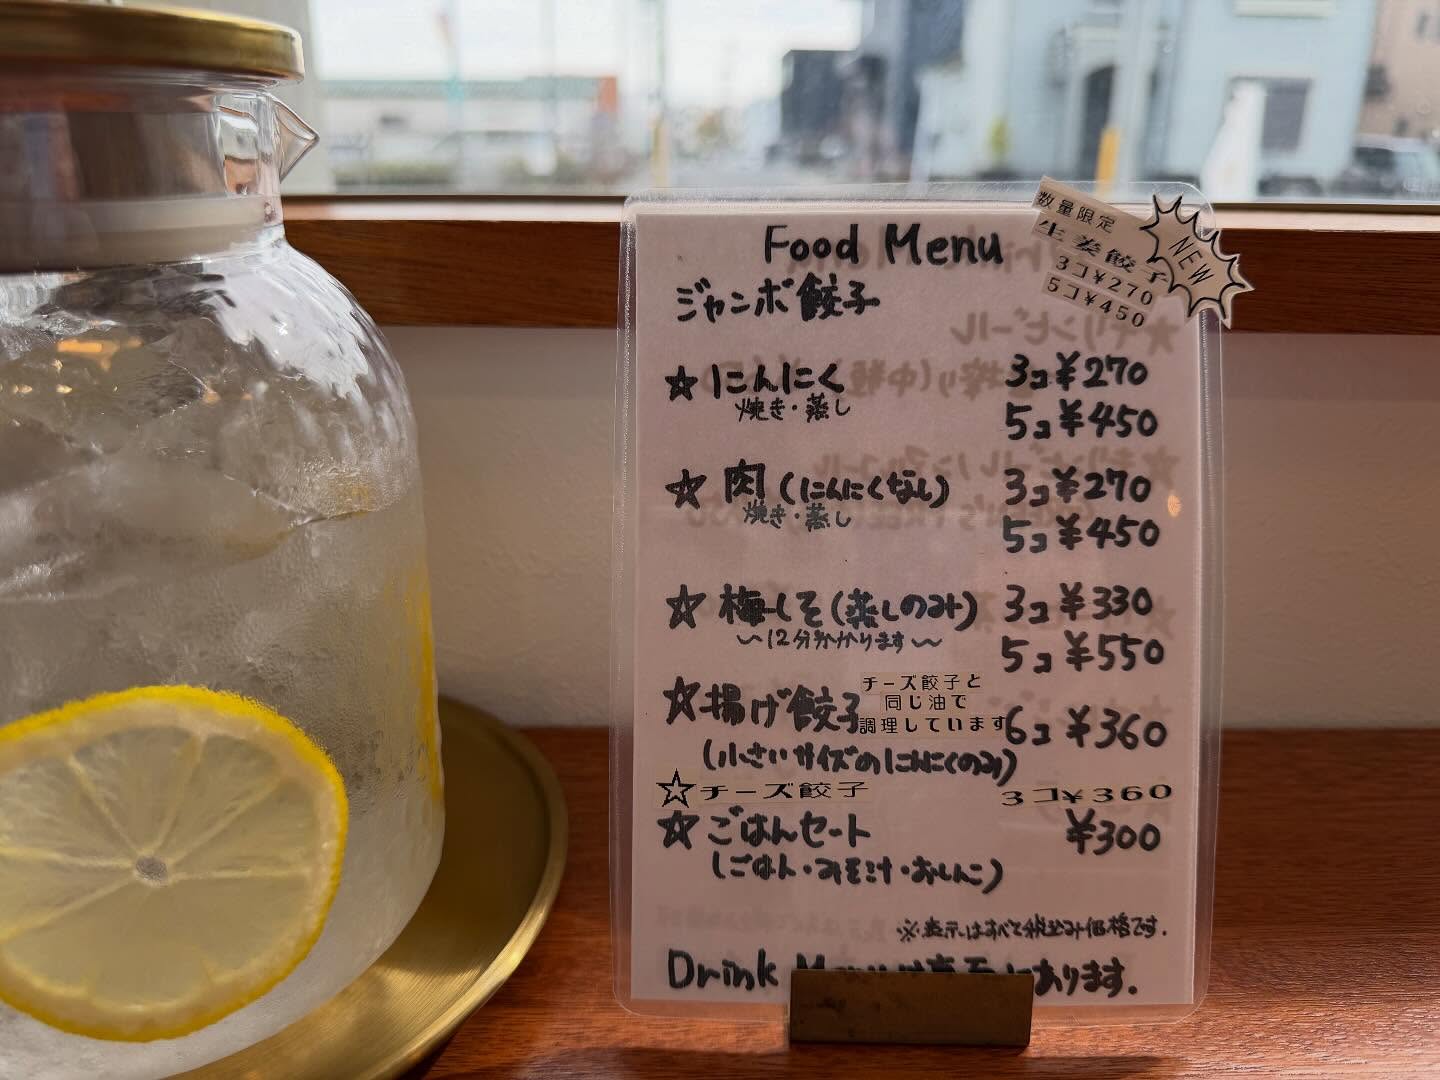 Food Menu
数量限定
生姜餃子
3コ¥270
5コ¥450
NEW
ジャンボ餃子
☆にんにく 3コ¥270
焼き・蒸し 5コ¥450
☆肉(にんにくなし) 3コ¥270
焼き・蒸し 5コ¥450
☆梅しそ(蒸しのみ) 3コ¥330
〜12分かかります〜 5コ¥550
☆揚げ餃子 6コ¥360
チーズ餃子と
同じ油で
調理しています
(小さいサイズのにんにくのみ)
☆チーズ餃子 3コ¥360
☆ごはんセート ¥300
(ごはん・みそ汁・おしんこ)
※表示はすべて税込み価格です.
Drink Menuは裏面にあります.